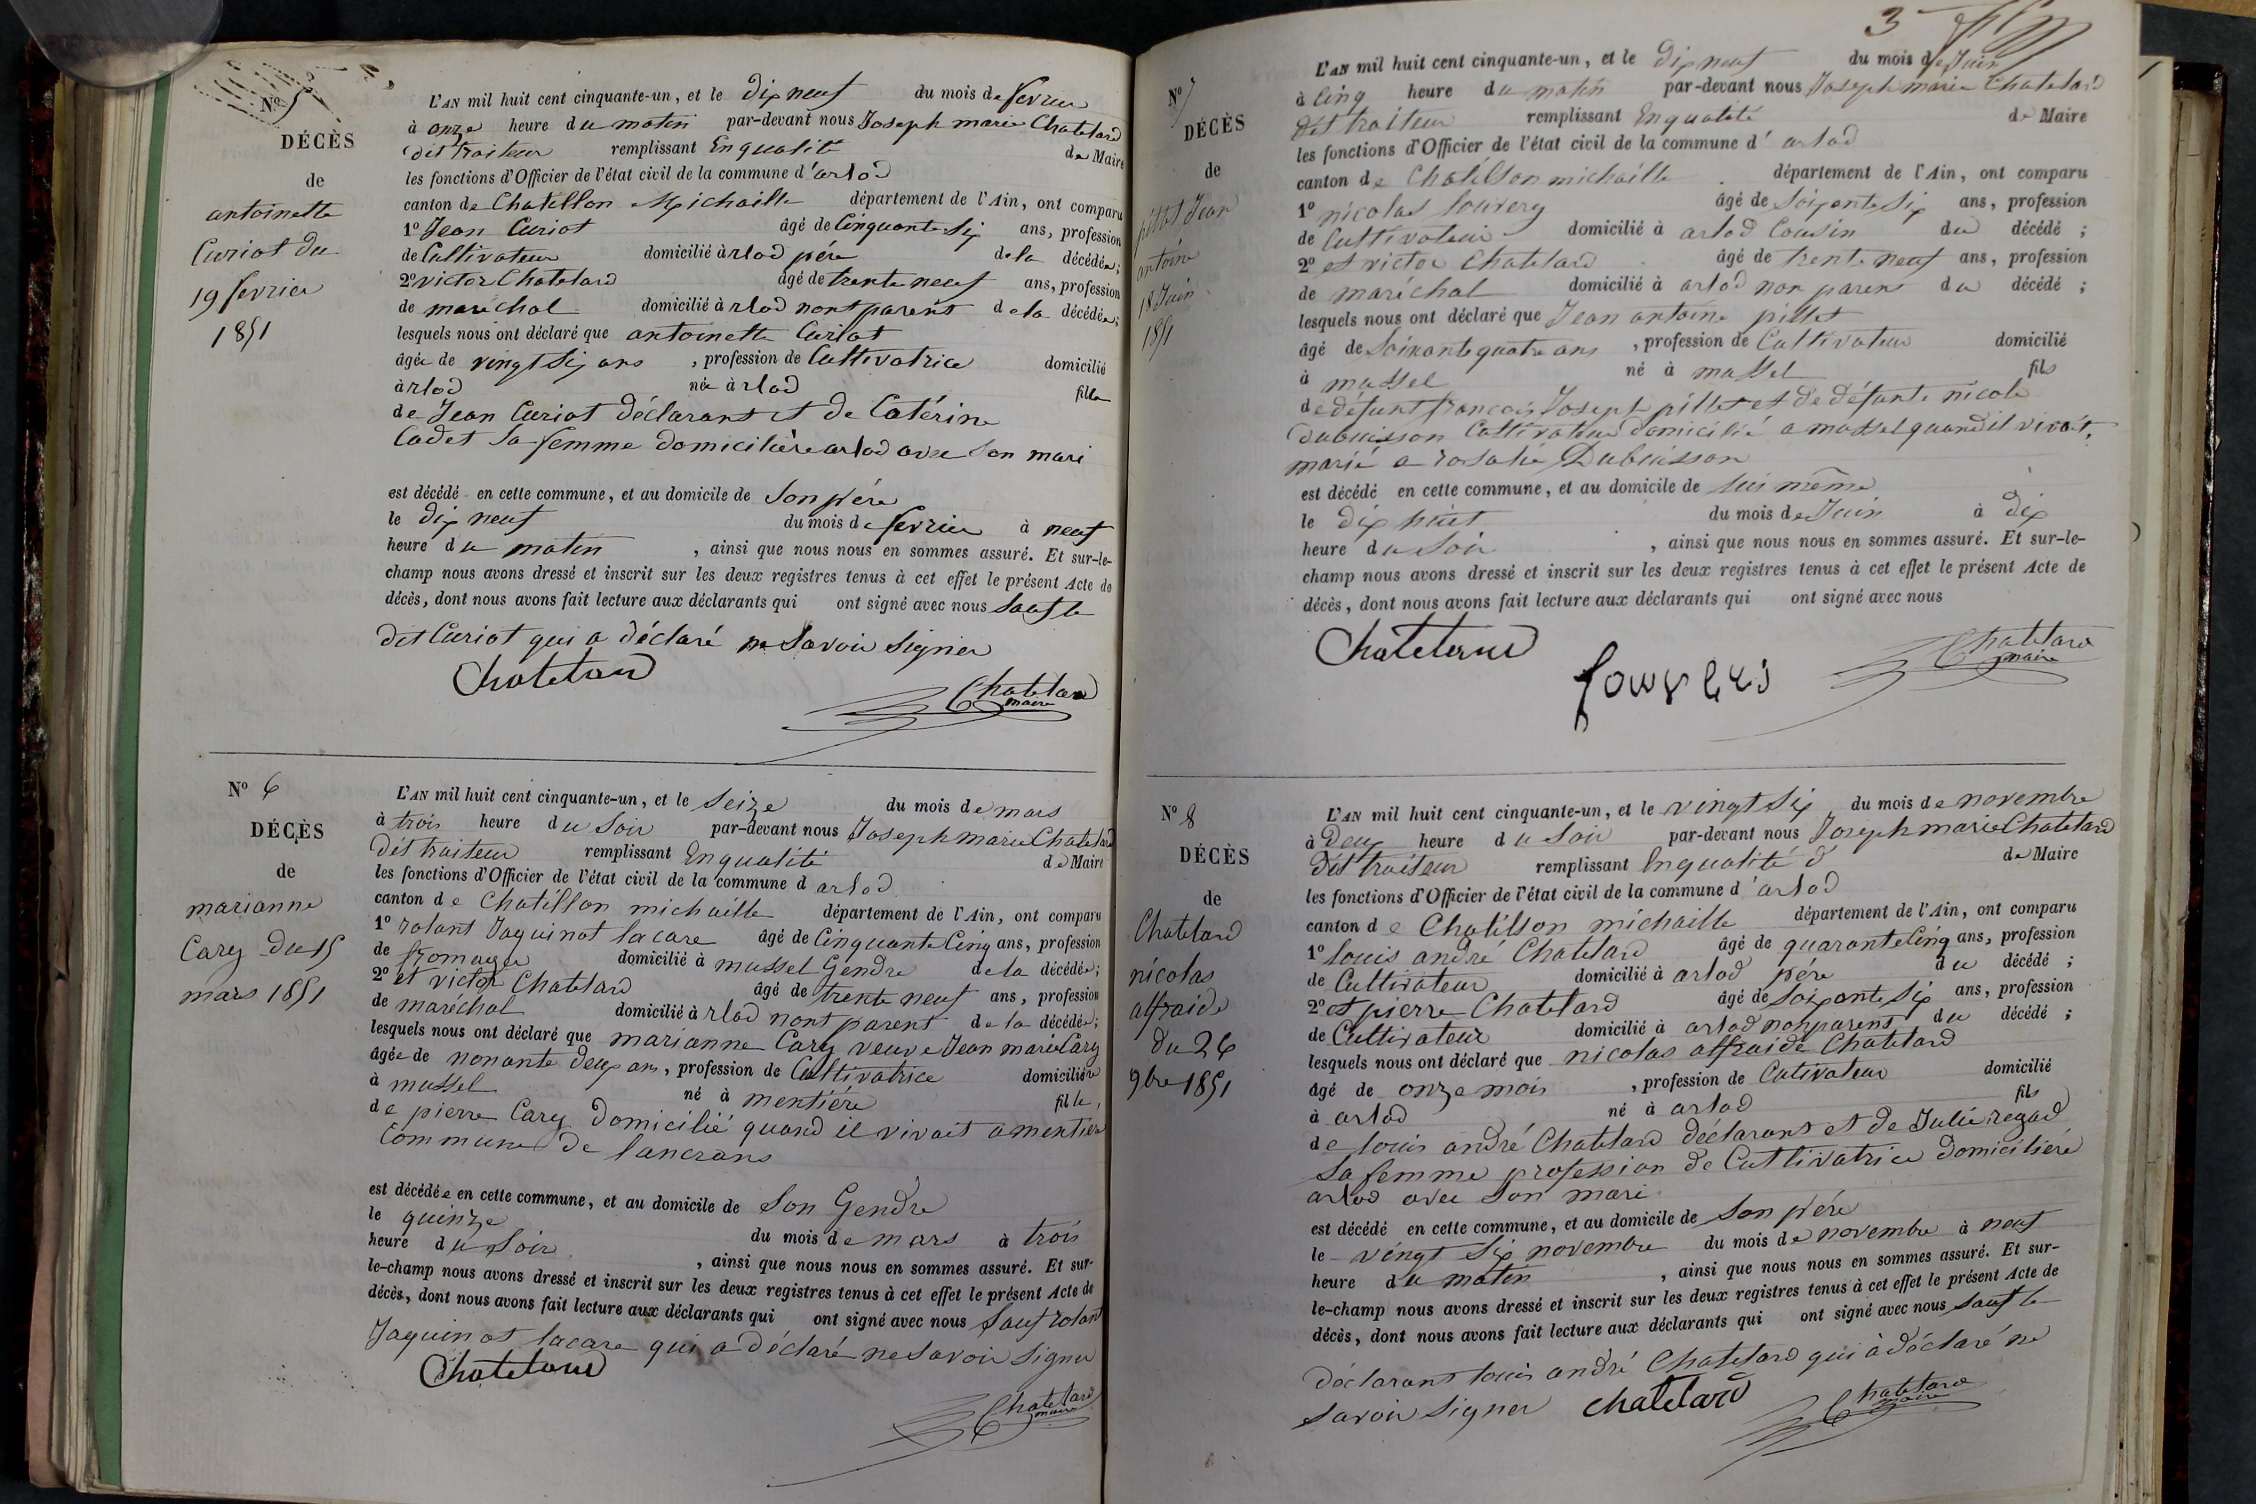 Nº 5
DÉCÈS
de
antoinette
Curiot du
19 fevrier
1851
L'AN mil huit cent cinquante-un, et le dix neuf du mois de fevrier
à onze heure du matin par-devant nous Joseph marie Chatelard
dit traiteur remplissant En qualité de Maire
les fonctions d'Officier de l'état civil de la commune d'arlod
canton de Chatillon Michaille département de l'Ain, ont comparu
1º Jean Curiot âgé de Cinquante six ans, profession
de Cultivateur domicilié à arlod pére de la décédée;
2º victor Chatelard âgé de trente neuf ans, profession
de maréchal domicilié à rlod nont parent de la décédée;
lesquels nous ont déclaré que antoinette Curiot
âgée de vingt six ans, profession de Cultivatrice domicilié
à rlod née à rlod fille
de Jean Curiot déclarant et de Catérine
Cadet sa femme domicilière arlod avec son mari
est décédé en cette commune, et au domicile de Son pére
le dix neuf du mois de fevrier à neuf
heure du matin, ainsi que nous nous en sommes assuré. Et sur-le-
champ nous avons dressé et inscrit sur les deux registres tenus à cet effet le présent Acte de
décès, dont nous avons fait lecture aux déclarants qui ont signé avec nous Sauf le
dit Curiot qui a déclaré ne Savoir Signer
Chatelard
Chatelard
maire
Nº 6
DÉCÈS
de
marianne
Cary du 15
mars 1851
L'AN mil huit cent cinquante-un, et le Seize du mois de mars
à trois heure du Soir par-devant nous Joseph marie Chatelard
dit traiteur remplissant En qualité de Maire
les fonctions d'Officier de l'état civil de la commune d arlod
canton de Chatillon michaille département de l'Ain, ont comparu
1º rolant Jaquinot lacare âgé de Cinquante Cinq ans, profession
de fromager domicilié à mussel Gendre de la décédée;
2º et victor Chatelard âgé de trente neuf ans, profession
de maréchal domicilié à rlod nont parent de la décédée;
lesquels nous ont déclaré que marianne Cary veuve Jean marie Cary
âgée de nonante deux ans, profession de Cultivatrice domicilière
à mussel né à mentiére fille,
de pierre Cary Domicilié quand il vivait a mentiére
Commune de lancrans
est décédée en cette commune, et au domicile de Son Gendre
le quinze du mois de mars à trois
heure du Soir, ainsi que nous nous en sommes assuré. Et sur-
le-champ nous avons dressé et inscrit sur les deux registres tenus à cet effet le présent Acte de
décès, dont nous avons fait lecture aux déclarants qui ont signé avec nous Sauf rolant
Jaquinot lacare qui a déclaré ne Savoir Signer
Chatelard
Chatelard
maire
3
Nº 7
DÉCÈS
de
pillet Jean
antoine
18 Juin
1851
L'AN mil huit cent cinquante-un, et le dix neuf du mois de Juin
à Cinq heure du matin par-devant nous Joseph marie Chatelard
dit traiteur remplissant En qualité de Maire
les fonctions d'Officier de l'état civil de la commune d' arlod
canton de Chatillon michaille département de l'Ain, ont comparu
1º nicolas âgé de Soixante Six ans, profession
de Cultivateur domicilié à arlod Cousin du décédé;
2º et victor Chatelard âgé de trente neuf ans, profession
de maréchal domicilié à arlod non parent du décédé;
lesquels nous ont déclaré que Jean antoine pillet
âgé de Soixante quatre ans, profession de Cultivateur domicilié
à mussel né à mussel fils
de défunt françois Joseph pillet et de défunte nicole
Dubuisson Cultivateur domicilié a mussel quand il vivait,
marié a rosalie Dubuisson
est décédé en cette commune, et au domicile de lui même
le dix huit du mois de Juin à dix
heure du Soir, ainsi que nous nous en sommes assuré. Et sur-le-
champ nous avons dressé et inscrit sur les deux registres tenus à cet effet le présent Acte de
décès, dont nous avons fait lecture aux déclarants qui ont signé avec nous
Chatelard
Chatelard
maire
Nº 8
DÉCÈS
de
Chatelard
nicolas
alfraide
du 26
9bre 1851
L'AN mil huit cent cinquante-un, et le vingt Six du mois de novembre
à Deux heure du Soir par-devant nous Joseph marie Chatelard
dit traiteur remplissant En qualité d' de Maire
les fonctions d'Officier de l'état civil de la commune d'arlod
canton de Chatillon michaille département de l'Ain, ont comparu
1º louis andré Chatelard âgé de quarante Cinq ans, profession
de Cultivateur domicilié à arlod pére du décédé;
2º et pierre Chatelard âgé de Soixante Six ans, profession
de Cultivateur domicilié à arlod non parent du décédé;
lesquels nous ont déclaré que nicolas alfraide Chatelard
âgé de onze mois, profession de Cutivateur domicilié
à arlod né à arlod fils
de louis andré Chatelard déclarant et de Julie regad
Sa femme profession de Cultivatrice domiciliére
arlod avec Son mari
est décédé en cette commune, et au domicile de Son pére
le vingt Six novembre du mois de novembre à neuf
heure du matin, ainsi que nous nous en sommes assuré. Et sur-
le-champ nous avons dressé et inscrit sur les deux registres tenus à cet effet le présent Acte de
décès, dont nous avons fait lecture aux déclarants qui ont signé avec nous Sauf le
Déclarant louis andré Chatelard qui à déclaré ne
Savoir Signer
chatelard
Chatelard
maire